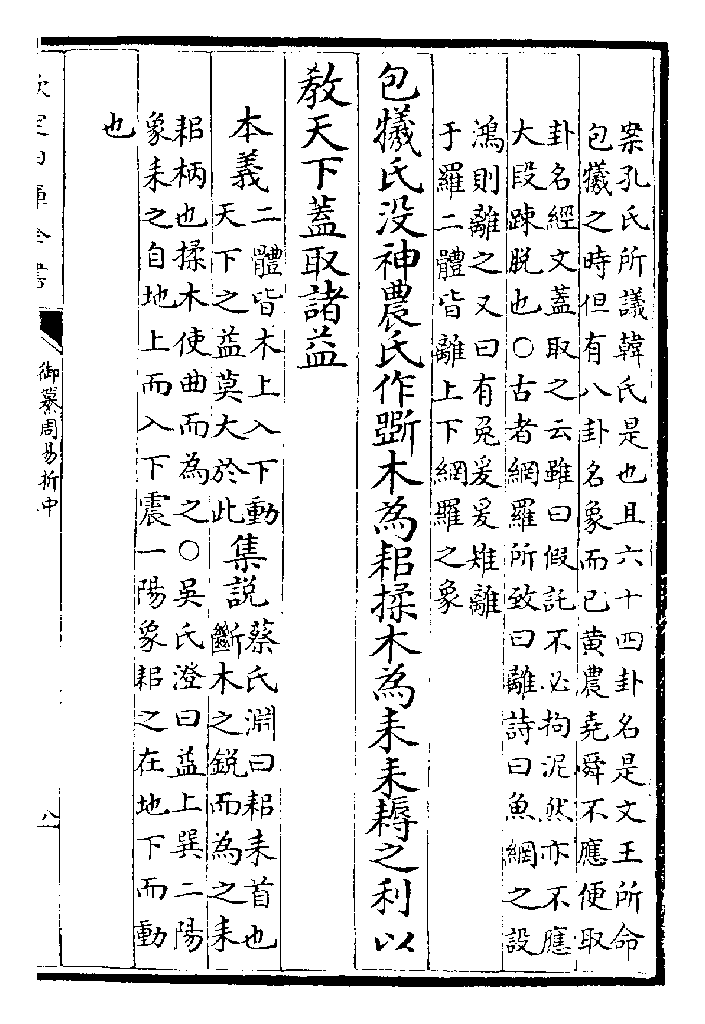 案孔氏所議韓氏是也且六十四卦名是文王所命
包犧之時但有八卦名象而已黄農堯舜不應便取
卦名經文蓋取之云雖曰假託不必拘泥然亦不應
大段踈脫也○古者網羅所致曰離詩曰魚網之設
鴻則離之又曰有兔爰爰雉離
于羅二體皆離上下網羅之象
包犧氏没神農氏作斲木為耜揉木為耒耒耨之利以
教天下蓋取諸益
本義
二體皆木上入下動
天下之益莫大於此
集説
蔡氏淵曰耜耒首也
斷木之鋭而為之耒
耜柄也揉木使曲而為之○吳氏澄曰益上巽二陽
象耒之自地上而入下震一陽象耜之在地下而動
也
欽定四庫全書
御纂周易折中
八